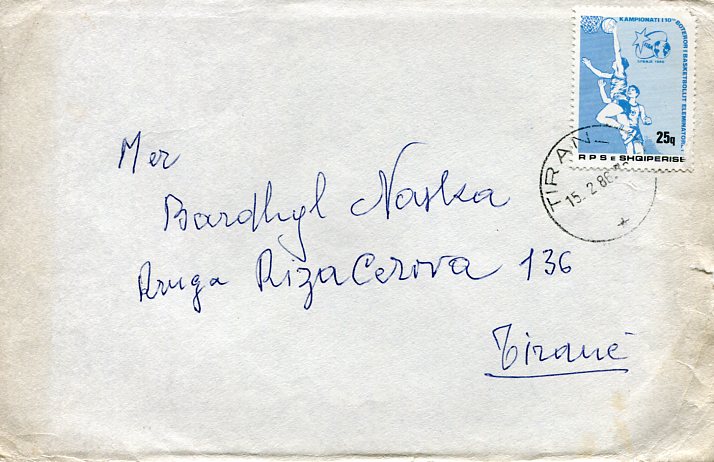 KAMPIONATI I 10të
BOTEROR I BASKETBOLLIT ELEMINATOR
SPANJE 1986
25q
R P S E SHQIPERISE
TIRAN
15. 2 86
Mer
Bardhyl Naska
Rruga Riza Cerova 136
Tiranë